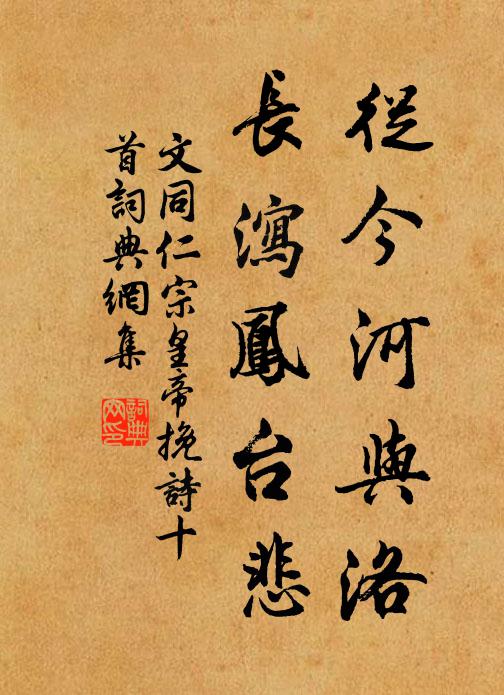 從今河與洛
長瀉鳳台悲
文同仁宗皇帝挽詩十
首詞典網集
詞典
网印